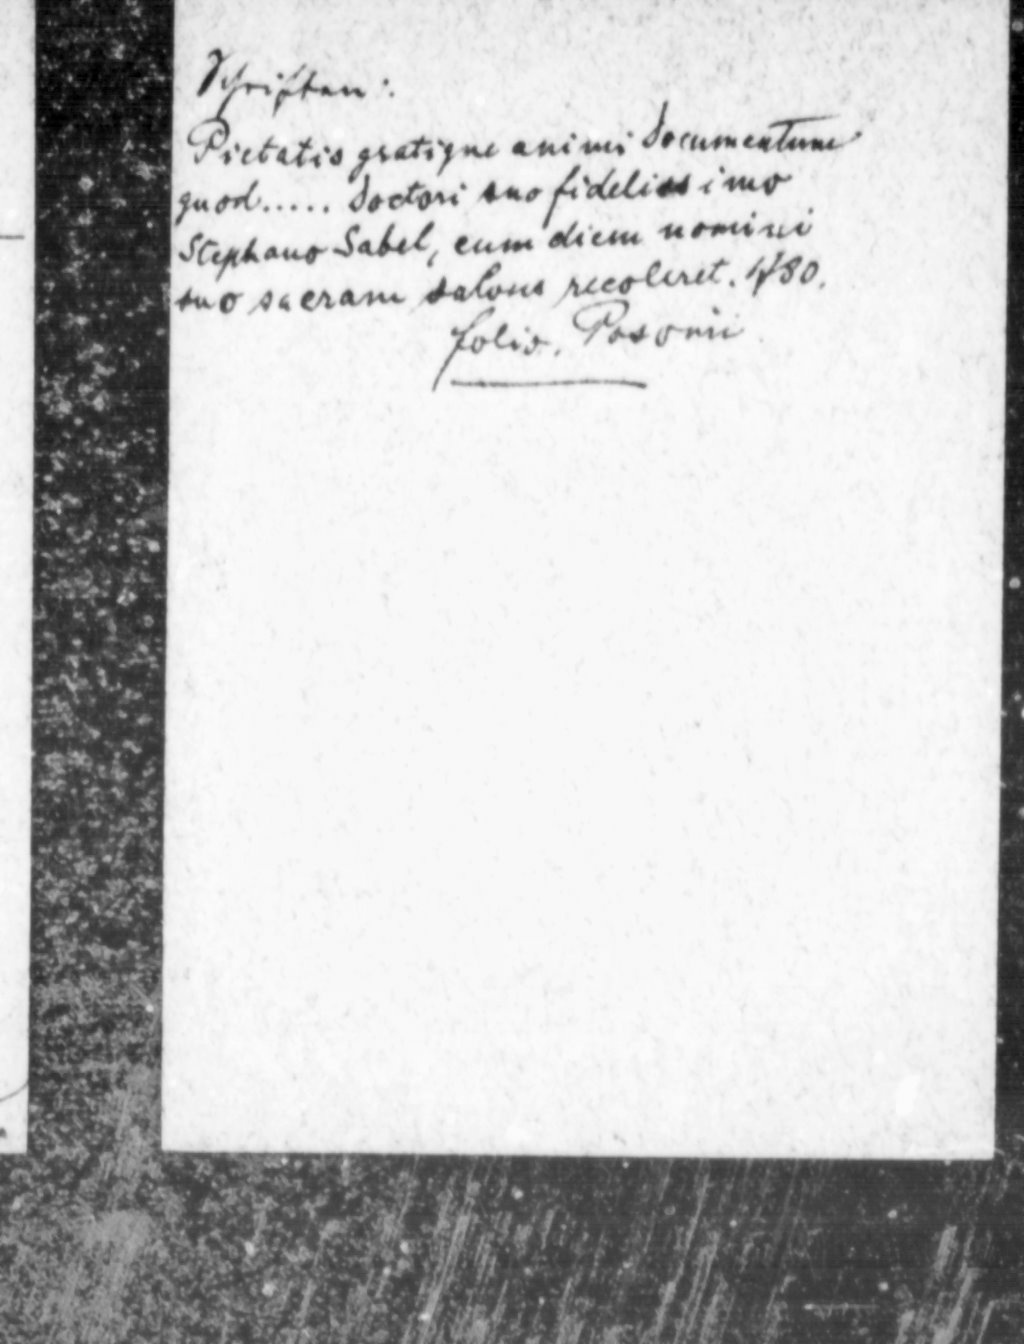 Schriften:
Pietatis gratique animi documentum
quod..... doctori suo fidelissimo
Stephano Sabel, cum diem nomini
suo sacram salvus recoleret. 1780.
folio. Posonii